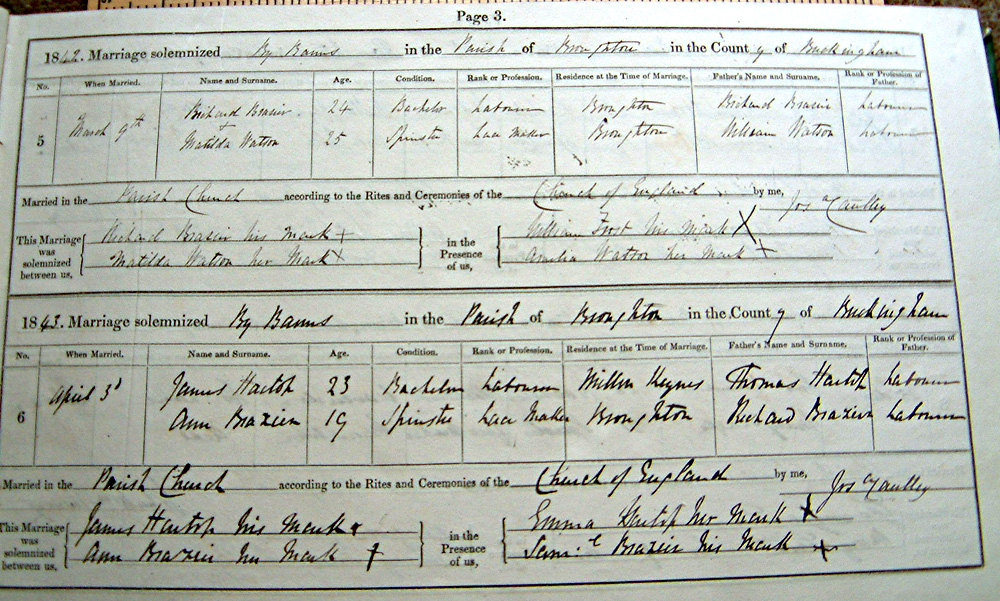 Page 3.
1842. Marriage solemnized By Banns in the Parish of Broughton in the County of Buckingham
No. When Married. Name and Surname. Age. Condition. Rank or Profession. Residence at the Time of Marriage. Father's Name and Surname. Rank or Profession of Father.
Richard Brasier 24 Bachelor Labourer Broughton Richard Brasier Labourer
5 March 9th + Matilda Watson 25 Spinster Lace Maker Broughton William Watson Labourer
Married in the Parish Church according to the Rites and Ceremonies of the Church of England by me, Jos Cautley
This Marriage was solemnized between us, { Richard Brasier his Mark + } in the Presence of us, { William Frost his Mark X
Matilda Watson her Mark X Amelia Watson her Mark +
1843. Marriage solemnized By Banns in the Parish of Broughton in the County of Buckingham
No. When Married. Name and Surname. Age. Condition. Rank or Profession. Residence at the Time of Marriage. Father's Name and Surname, Rank or Profession of Father.
April 3d James Hartop 23 Bachelor Labourer Willen Keynes Thomas Hartop Labourer
6 Ann Brazier 19 Spinster Lace Maker Broughton Richard Brazier Labourer
Married in the Parish Church according to the Rites and Ceremonies of the Church of England by me, Jos Cautley
This Marriage was solemnized between us, { James Hartop his Mark x } in the Presence of us, { Emma Hartop her Mark X
Ann Brazier her Mark + Saml Brazier his Mark +